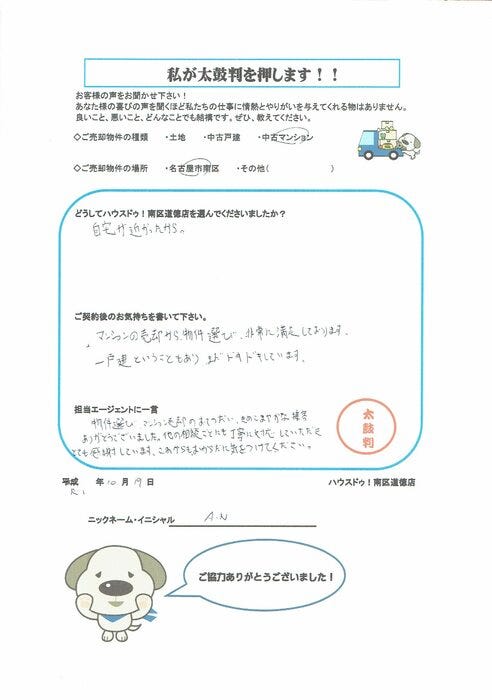 私が太鼓判を押します！！
お客様の声をお聞かせ下さい！
あなた様の喜びの声を聞くほど私たちの仕事に情熱とやりがいを与えてくれる物はありません。
良いこと、悪いこと、どんなことでも結構です。ぜひ、教えてください。
◇ご売却物件の種類　・土地　・中古戸建　・中古マンション
◇ご売却物件の場所　・名古屋市南区　・その他(　　　　)
どうしてハウスドゥ！南区道徳店を選んでくださいましたか？
自宅が近かったから。
ご契約後のお気持ちを書いて下さい。
マンションの売却から、物件選び、非常に満足しております。
一戸建ということもあり、まだドキドキしています。
担当エージェントに一言
物件選び、マンション売却のおてつだい、きめこまやかな接客
ありがとうございました。他の相談ごとにも丁寧に対応していただき
とても感謝しています。これからもおからだに気をつけてください。
太鼓判
平成　年10月19日　ハウスドゥ！南区道徳店
R1
ニックネーム・イニシャル　A.N
ご協力ありがとうございました！